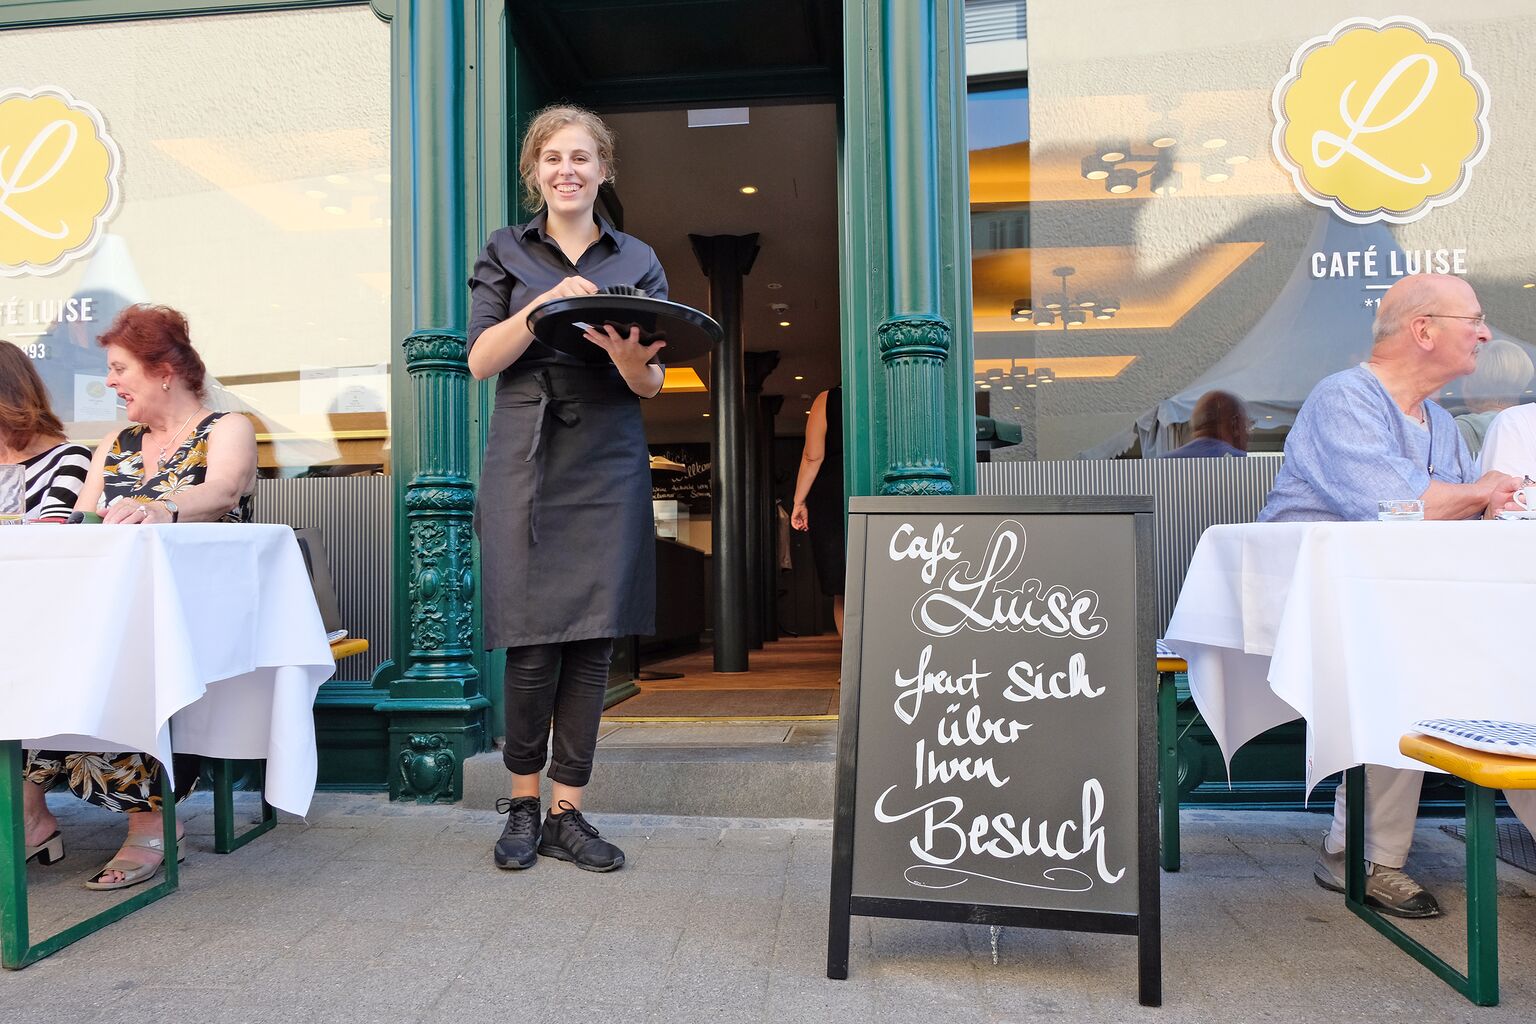 L
FÉ LUISE
893
L
CAFÉ LUISE
*1
Willkom
Café
Luise
freut sich
über
Ihren
Besuch